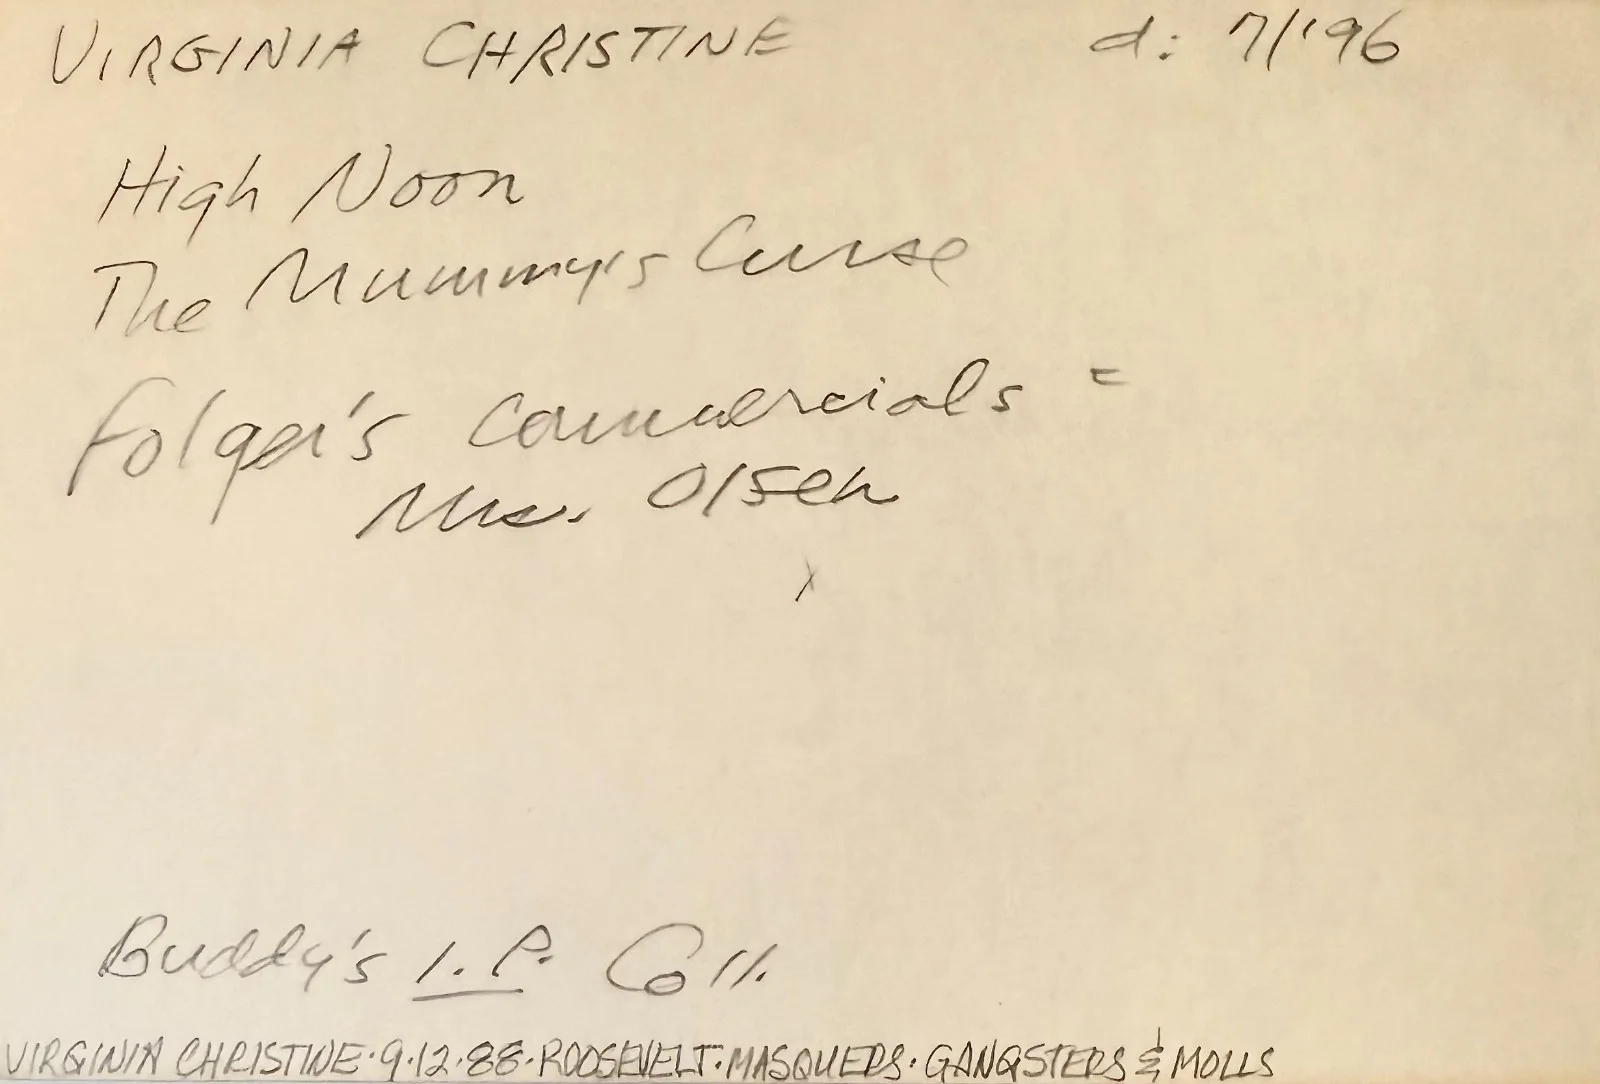 VIRGINIA CHRISTINE d: 7/'96
High Noon
The Mummy's Curse
Folger's Commercials =
Mrs. Olsen
x
Buddy's I. P. Coll.
VIRGINIA CHRISTINE·9·12·88·ROOSEVELT·MASQUERS·GANGSTERS & MOLLS